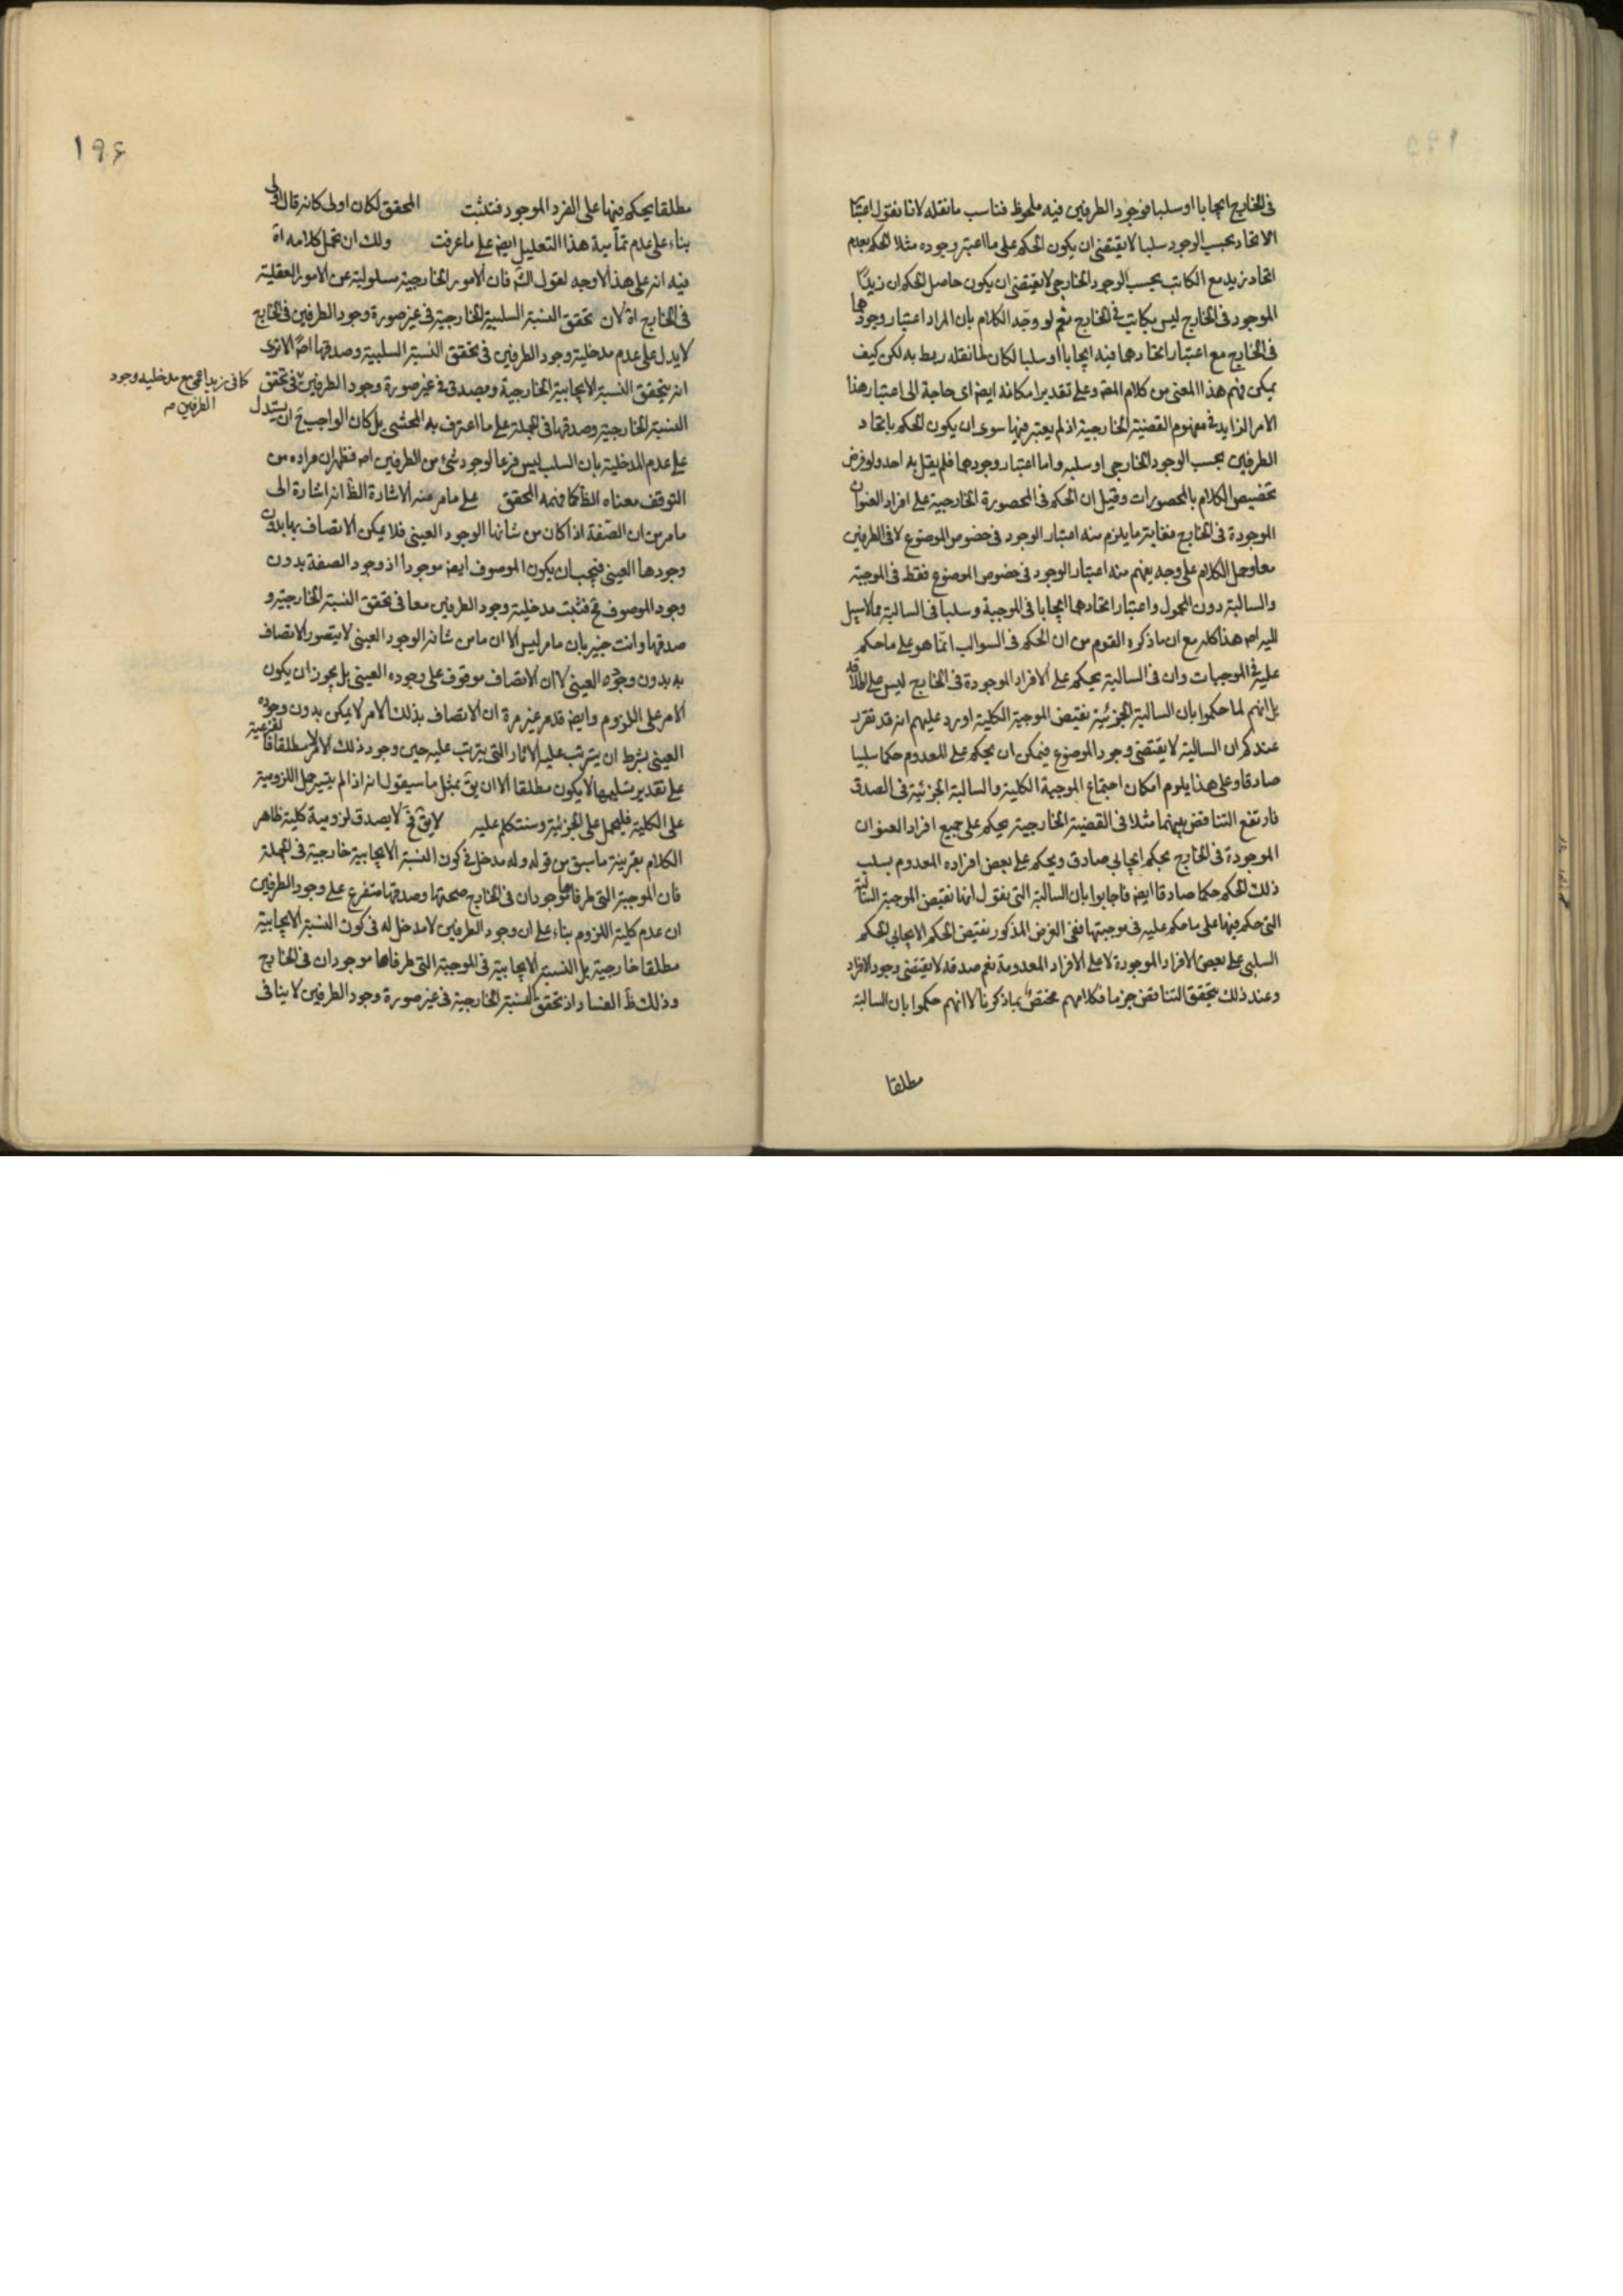 في الخارج ايجابا او سلبا فوجود الطرفين فيه ملحوظ فناسب ما نقله لانا نقول اعتبار
الاتحاد بحسب الوجود سلبا لا يقتضي ان يكون الحكم على ما اعتبر وجوده مثلا الحكم بعدم
اتحاد زيد مع الكاتب بحسب الوجود الخارجي لا يقتضي ان يكون حاصل الحكم ان زيدا
الموجود في الخارج ليس بكاتب في الخارج نعم لو وجّه الكلام بان المراد اعتبار وجودهما
في الخارج مع اعتبار اتحادهما فيه ايجابا او سلبا لكان لما نقله ربط به لكن كيف
يمكن فهم هذا المعنى من كلام المص وعلى تقدير امكانه ايض اى حاجة الى اعتبار هذا
الامر الزايد في مفهوم القضية الخارجية اذ لم يعتبر فيها سوى ان يكون الحكم باتحاد
الطرفين بحسب الوجود الخارجي او سلبه واما اعتبار وجودهما فلم يقل به احد ولو فرض
تخصيص الكلام بالمحصورات وقيل ان الحكم في المحصورة الخارجية على افراد العنوان
الموجودة في الخارج فغاية ما يلزم منه اعتبار الوجود في خصوص الموضوع لا في الطرفين
معا وحمل الكلام على وجه يفهم منه اعتبار الوجود في خصوص الموضوع فقط في الموجبة
والسالبة دون المحمول واعتبار اتحادهما ايجابا في الموجبة وسلبا في السالبة مما لا سبيل
اليه اصه هذا كله مع ان ما ذكره القوم من ان الحكم في السوالب انما هو على ما حكم
عليه في الموجبات وان في السالبة يحكم على الافراد الموجودة في الخارج ليس على اطلاقه
بل انهم لما حكموا بان السالبة الجزئية نقيض الموجبة الكلية اورد عليهم انه قد تقرر
عندكم ان السالبة لا يقتضي وجود الموضوع فيمكن ان يحكم على المعدوم حكما سلبيا
صادقا وعلى هذا يلزم امكان اجتماع الموجبة الكلية والسالبة الجزئية في الصدق
فارتفع التناقض بينهما مثلا في القضية الخارجية يحكم على جميع افراد العنوان
الموجودة في الخارج بحكم ايجابي صادق ويحكم على بعض افراده المعدوم بسلب
ذلك الحكم حكما صادقا ايض فاجابوا بان السالبة التي نقول انها نقيض الموجبة السالبة
التي حكم فيها على ما حكم عليه في موجبتها ففي الفرض المذكور نقيض الحكم الايجابي الحكم
السلبي على بعض الافراد الموجودة لا على الافراد المعدومة نعم صدقه لا يقتضي وجود الافراد
وعند ذلك يتحقق التناقض جزما فكلامهم مختص بما ذكرنا لا انهم حكموا بان السالبة
مطلقا
١٩٦
مطلقا يحكم فيها على الفرد الموجود فتثبت المحقق لكان اولى كانه قال اولى
بناء على عدم تمامية هذا التعليل ايض على ما عرفت ولك ان تحمل كلامه اه
فيه انه على هذا لا وجه لقول الش فان الامور الخارجية مسلوبة عن الامور العقلية
في الخارج اه لان تحقق النسبة السلبية الخارجية في غير صورة وجود الطرفين في الخارج
لا يدل على عدم مدخلية وجود الطرفين في تحقق النسبة السلبية وصدقها اصه الا ترى
انه يتحقق النسبة الايجابية الخارجية ويصدق في غير صورة وجود الطرفين في تحقق
كما في زيد اعمى مع مدخليه وجود
الطرفين صه
النسبة الخارجية وصدقها في الجملة على ما اعترف به المحشي بل كان الواجب ح ان يستدل
على عدم المدخلية بان السلب ليس فرعا لوجود شئ من الطرفين اصه فظهر ان مراده من
التوقف معناه الظ كما فهمه المحقق على ما مر منه الاشارة الظ انه اشارة الى
ما مر من ان الصفة اذا كان من شانها الوجود العيني فلا يمكن الاتصاف بها بدون
وجودها العيني فيجب ان يكون الموصوف ايض موجودا اذ وجود الصفة بدون
وجود الموصوف مح فثبت مدخلية وجود الطرفين معا في تحقق النسبة الخارجية و
صدقها وانت خبير بان ما مر ليس الا ان ما من شانه الوجود العيني لا يتصور الاتصاف
به بدون وجوده العيني لا ان الاتصاف موقوف على وجوده العيني بل يجوز ان يكون
الامر على اللزوم وايض قد مر غير مرة ان الاتصاف بذلك الامر لا يمكن بدون وجوده
العيني بشرط ان يترتب عليه الاثار التي يترتب عليه حين وجود ذلك الامر لا مطلقا فالفرعية
على تقدير تسليمها لا يكون مطلقا الا ان يق بمثل ما سيقول انه اذا لم يتيسر حمل اللزومية
على الكلية فليحمل على الجزئية وسنتكلم عليه لا يق فح لا يصدق لزومية كلية ظاهر
الكلام بقرينة ما سبق من قوله وله مدخل في كون النسبة الايجابية خارجية في الجملة
فان الموجبة التي طرفاها موجودان في الخارج صحتها وصدقها متفرع على وجود الطرفين
ان عدم كلية اللزوم بناء على ان وجود الطرفين لا مدخل له في كون النسبة الايجابية
مطلقا خارجية بل النسبة الايجابية في الموجبة التي طرفاها موجودان في الخارج
وذلك ظ الفساد اذ تحقق النسبة الخارجية في غير صورة وجود الطرفين لا ينافي